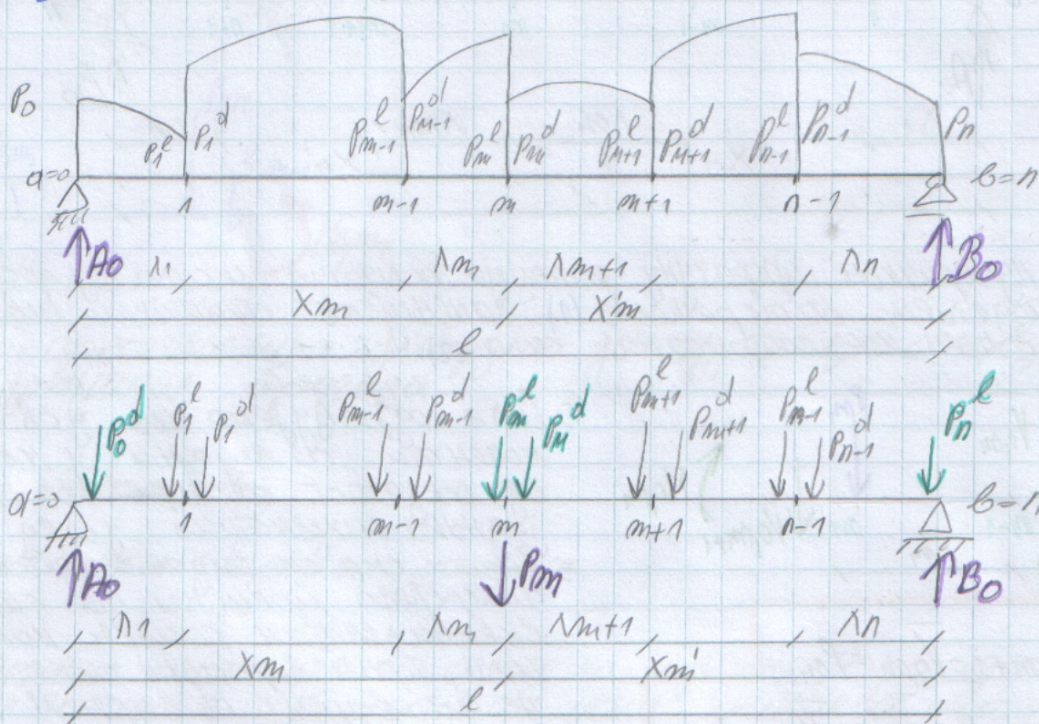 P0
P1^l P1^d Pm-1^l Pm-1^d Pm^l Pm^d Pm+1^l Pm+1^d Pn-1^l Pn-1^d Pn
a=0 1 m-1 m m+1 n-1 b=n
A0 λ1 λm λm+1 λn B0
xm x'm
l
P0^d P1^l P1^d Pm-1^l Pm-1^d Pm^l Pm^d Pm+1^l Pm+1^d Pn-1^l Pn-1^d Pn^l
a=0 1 m-1 m m+1 n-1 b=n
A0 Pm B0
λ1 λm λm+1 λn
xm xm'
l